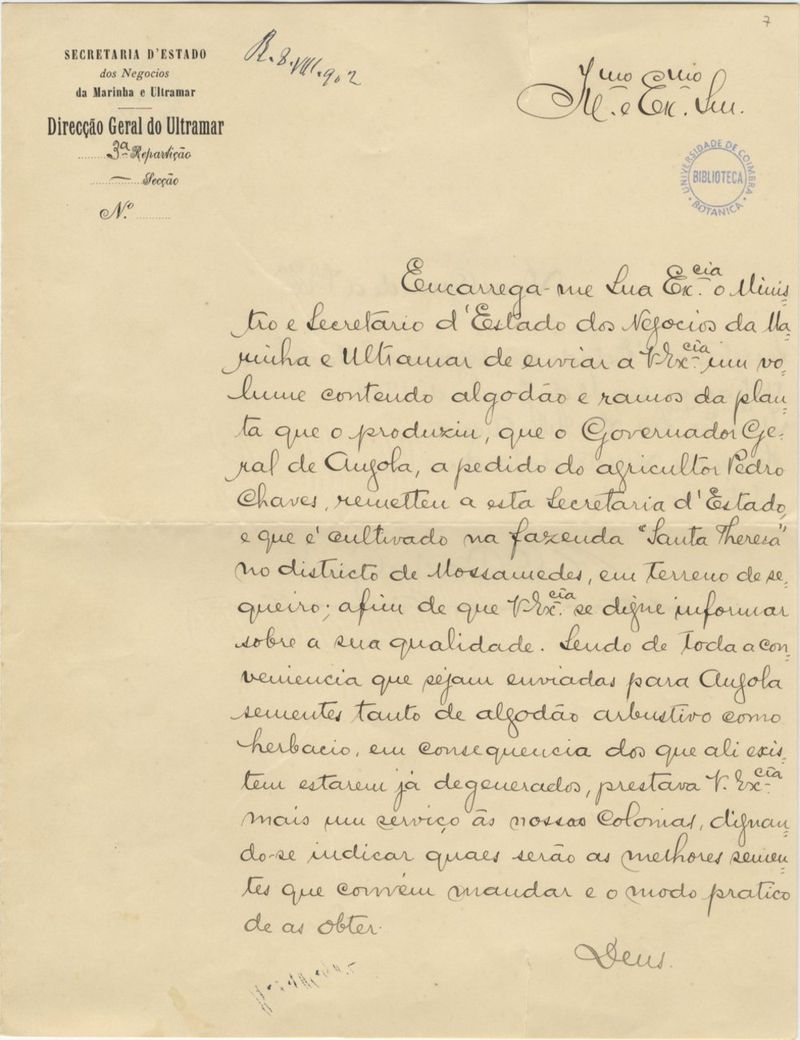 7
SECRETARIA D'ESTADO
dos Negocios
da Marinha e Ultramar
Direcção Geral do Ultramar
3ª Repartição
Secção
N.º
R. 8. VIII. 902
Ill.mo e Ex.mo Snr.
UNIVERSIDADE DE COIMBRA
BIBLIOTECA
BOTANICA
Encarrega-me Sua Ex.cia o Minis=
tro e Secretário d'Estado dos Negocios da Ma=
rinha e Ultramar de enviar a V. Ex.cia um vo=
lume contendo algodão e ramos da plan=
ta que o produziu, que o Governador Ge=
ral de Angola, a pedido do agricultor Pedro
Chaves, remetteu a esta Secretaria d'Estado,
e que é cultivado na fazenda "Santa Theresa"
no districto de Mossamedes, em terreno de se=
queiro; afim de que V. Ex.cia se digne informar
sobre a sua qualidade. Sendo de toda a con=
veniencia que sejam enviadas para Angola
sementes tanto de algodão arbustivo como
herbacio, em consequencia dos que ali exis=
tem estarem já degenerados, prestava V. Ex.cia
mais um serviço ás nossas Colonias, dignan=
do-se indicar quaes serão as melhores semen=
tes que convém mandar e o modo pratico
de as obter.
Deus.